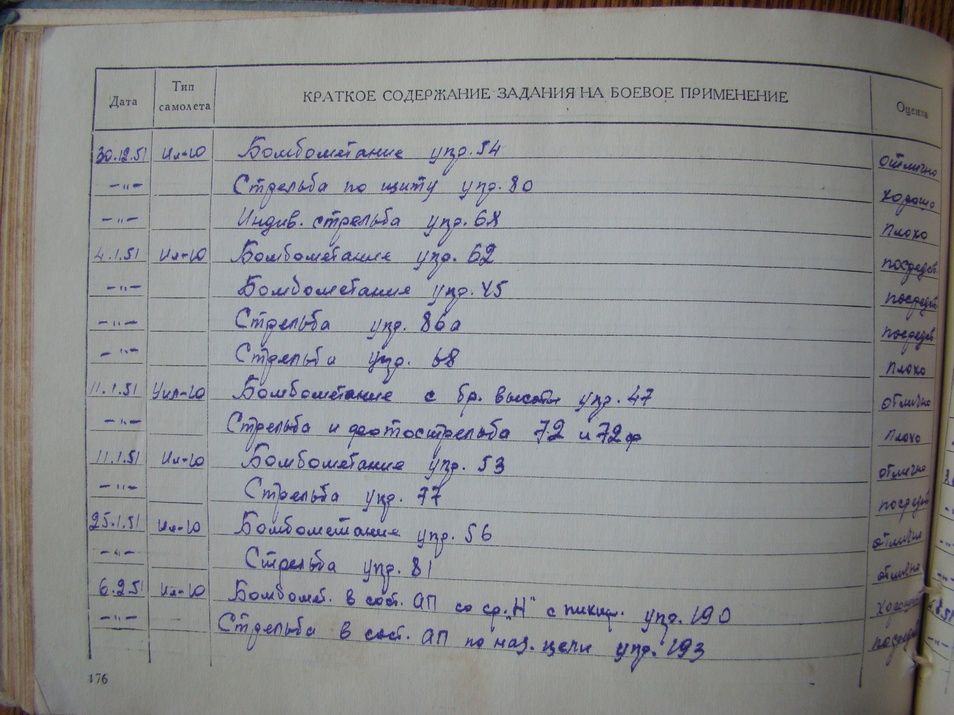 Дата Тип самолета КРАТКОЕ СОДЕРЖАНИЕ ЗАДАНИЯ НА БОЕВОЕ ПРИМЕНЕНИЕ Оценка
30.12.51 Ил-10 Бомбометание упр. 54 отлично
-"- Стрельба по щиту упр. 80 хорошо
-"- Индив. стрельба упр. 68 плохо
4.1.51 Ил-10 Бомбометание упр. 62 посредств
-"- Бомбометание упр. 45 посредств
-"- Стрельба упр. 86а посредств
-"- Стрельба упр. 68 плохо
11.1.51 Уил-10 Бомбометание с бр. высоты упр. 47 отлично
-"- Стрельба и фотострельба 72 и 72ф плохо
11.1.51 Ил-10 Бомбометание упр. 53 отлично
-"- Стрельба упр. 77 посредств
25.1.51 Ил-10 Бомбометание упр. 56 отлично
-"- Стрельба упр. 81 отлично
6.2.51 Ил-10 Бомбомет. в сост. АП со ср. "Н" с пикир. упр. 190 хорошо
-"- Стрельба в сост. АП по наз. цели упр. 193 посредств
176